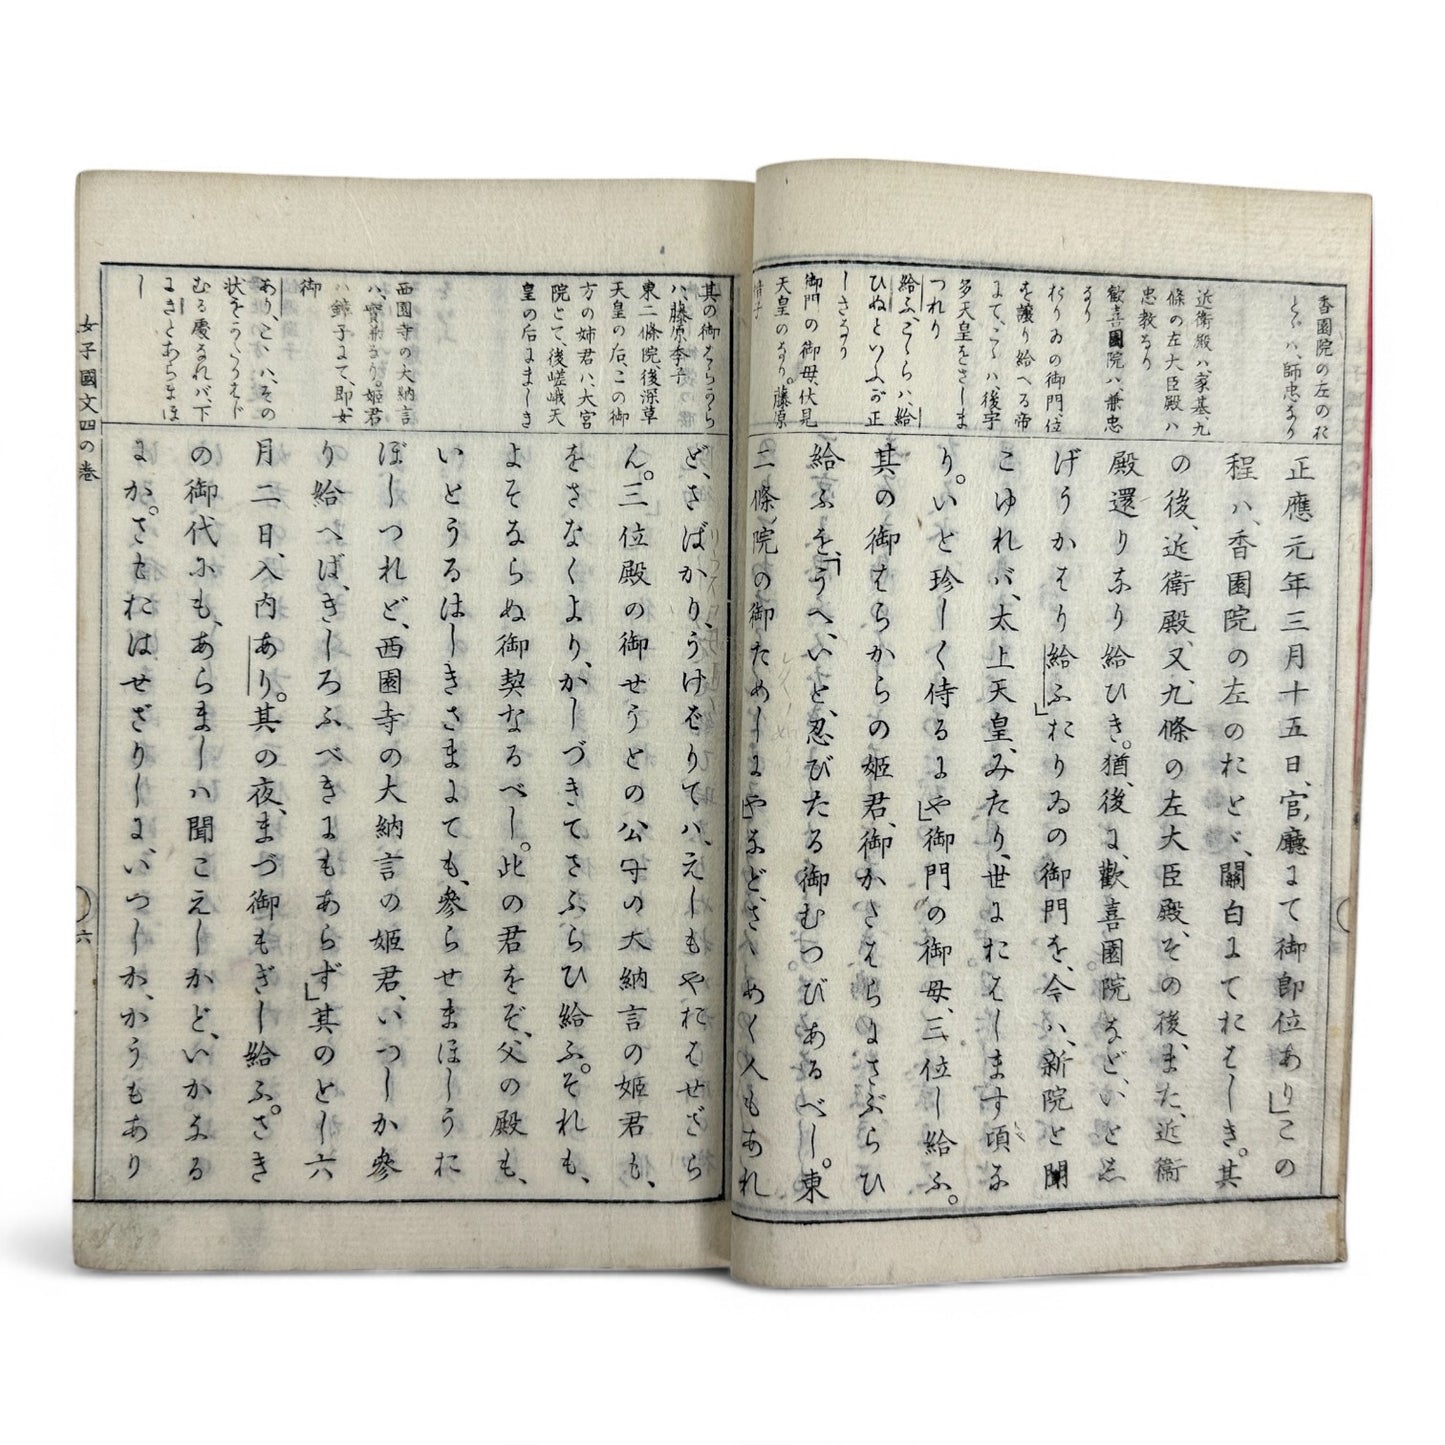 香園院の左のお
とゞハ、師忠なり
近衛殿ハ、家基、九
條の左大臣殿ハ
忠教なり
歡喜園院ハ、兼忠
なり
おりゐの御門、位
を讓り給へる帝
にて、こゝハ、後宇
多天皇をさしま
つれり
給ふ、こゝらハ、給
ひぬといふが正
しきなり
御門の御母、伏見
天皇のなり。藤原
愔子
正應元年三月十五日、官廳にて御即位あり」この
程ハ、香園院の左のおとゞ、關白にておはしき。其
の後、近衛殿、又、九條の左大臣殿、その後、また、近衛
殿還りなり給ひき。猶、後に、歡喜園院など、いとし
げうかはり給ふ」おりゐの御門を、今ハ、新院と聞
こゆれバ、太上天皇、みたり、世におはします頃な
り。いと珍しく侍るにや」御門の御母、三位し給ふ。
其の御はらからの姫君、御かたはらにさぶらひ
給ふを、「うへ、いと、忍びたる御むつびあるべし。東
二條院の御ためしにや」など、さゝめく人もあれ
其の御はらから
ハ、藤原季子
東二條院、後深草
天皇の后、この御
方の姉君ハ、大宮
院とて、後嵯峨天
皇の后にましき
西園寺の大納言
ハ、實兼なり。姫君
ハ鏱子にて、即女
御
あり、こゝハ、その
状をうつ はじ
むる處なれバ、下
にきとあらまほ
し
ど、さばかり、うけばりてハ、えしもやおはせざら
ん。三位殿の御せうとの公守の大納言の姫君も、
をさなくより、かしづきてさふらひ給ふ。それも、
よそならぬ御契なるべし。此の君をぞ、父の殿も、
いとうるはしきさまにても、參らせまほしうお
ぼしつれど、西園寺の大納言の姫君、いつしか參
り給へば、きしろふべきにもあらず」其のとし六
月二日、入内あり。其の夜、まづ御もぎし給ふ。さき
の御代にも、あらましハ聞こえしかど、いかなる
にか。さもおはせざりしに、いつしか、かうもあり
女子國文四の巻
六